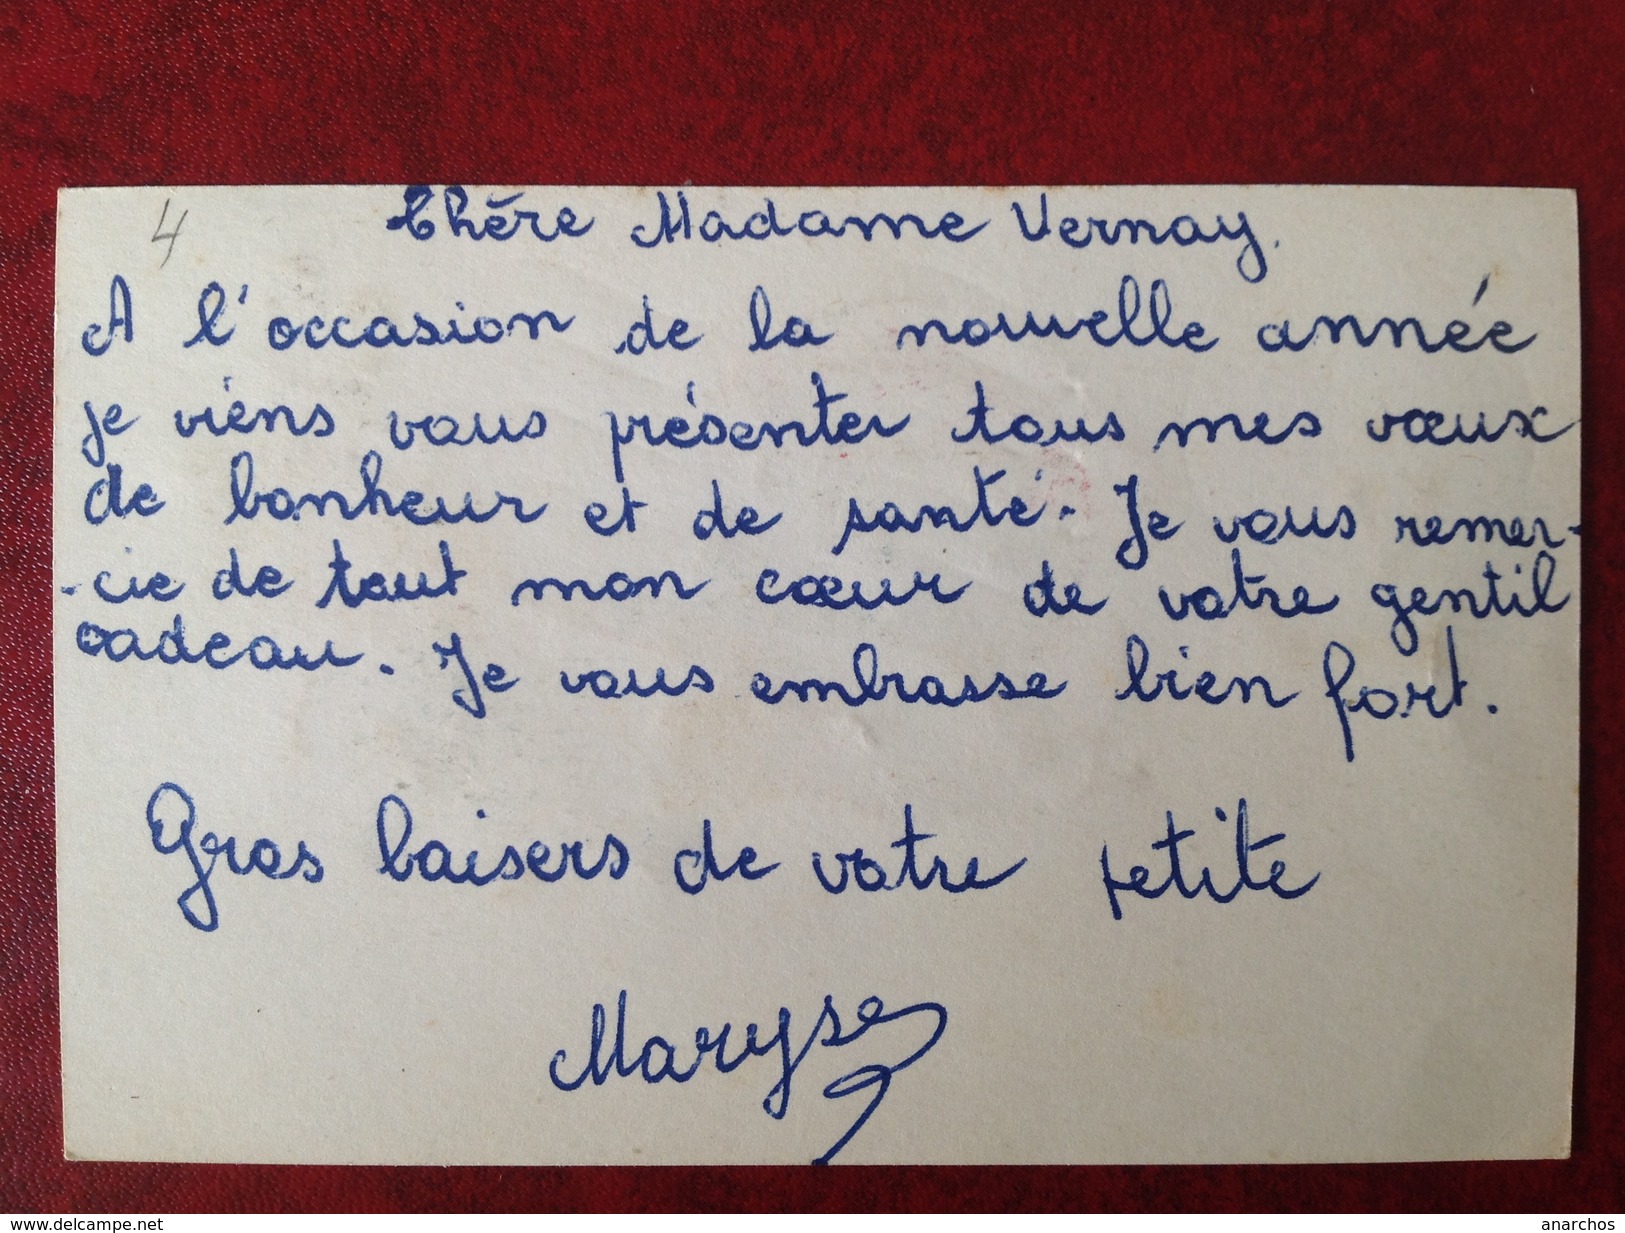 4
Chère Madame Vernay.
A l'occasion de la nouvelle année
je viens vous présenter tous mes vœux
de bonheur et de santé. Je vous remer-
-cie de tout mon cœur de votre gentil
cadeau. Je vous embrasse bien fort.
Gros baisers de votre petite
Maryse
www.delcampe.net
anarchos